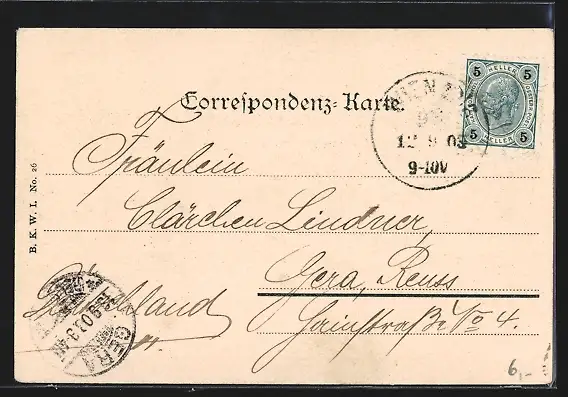 5 HELLER 5
5 HELLER 5
WIEN
Correspondenz-Karte.
12 9 03
9-10V
Fräulein
Clärchen Lindner,
Gera, Reuss
Deutschland
Hainstraße No 4.
B. K. W. I. No. 26
GERA
6,-